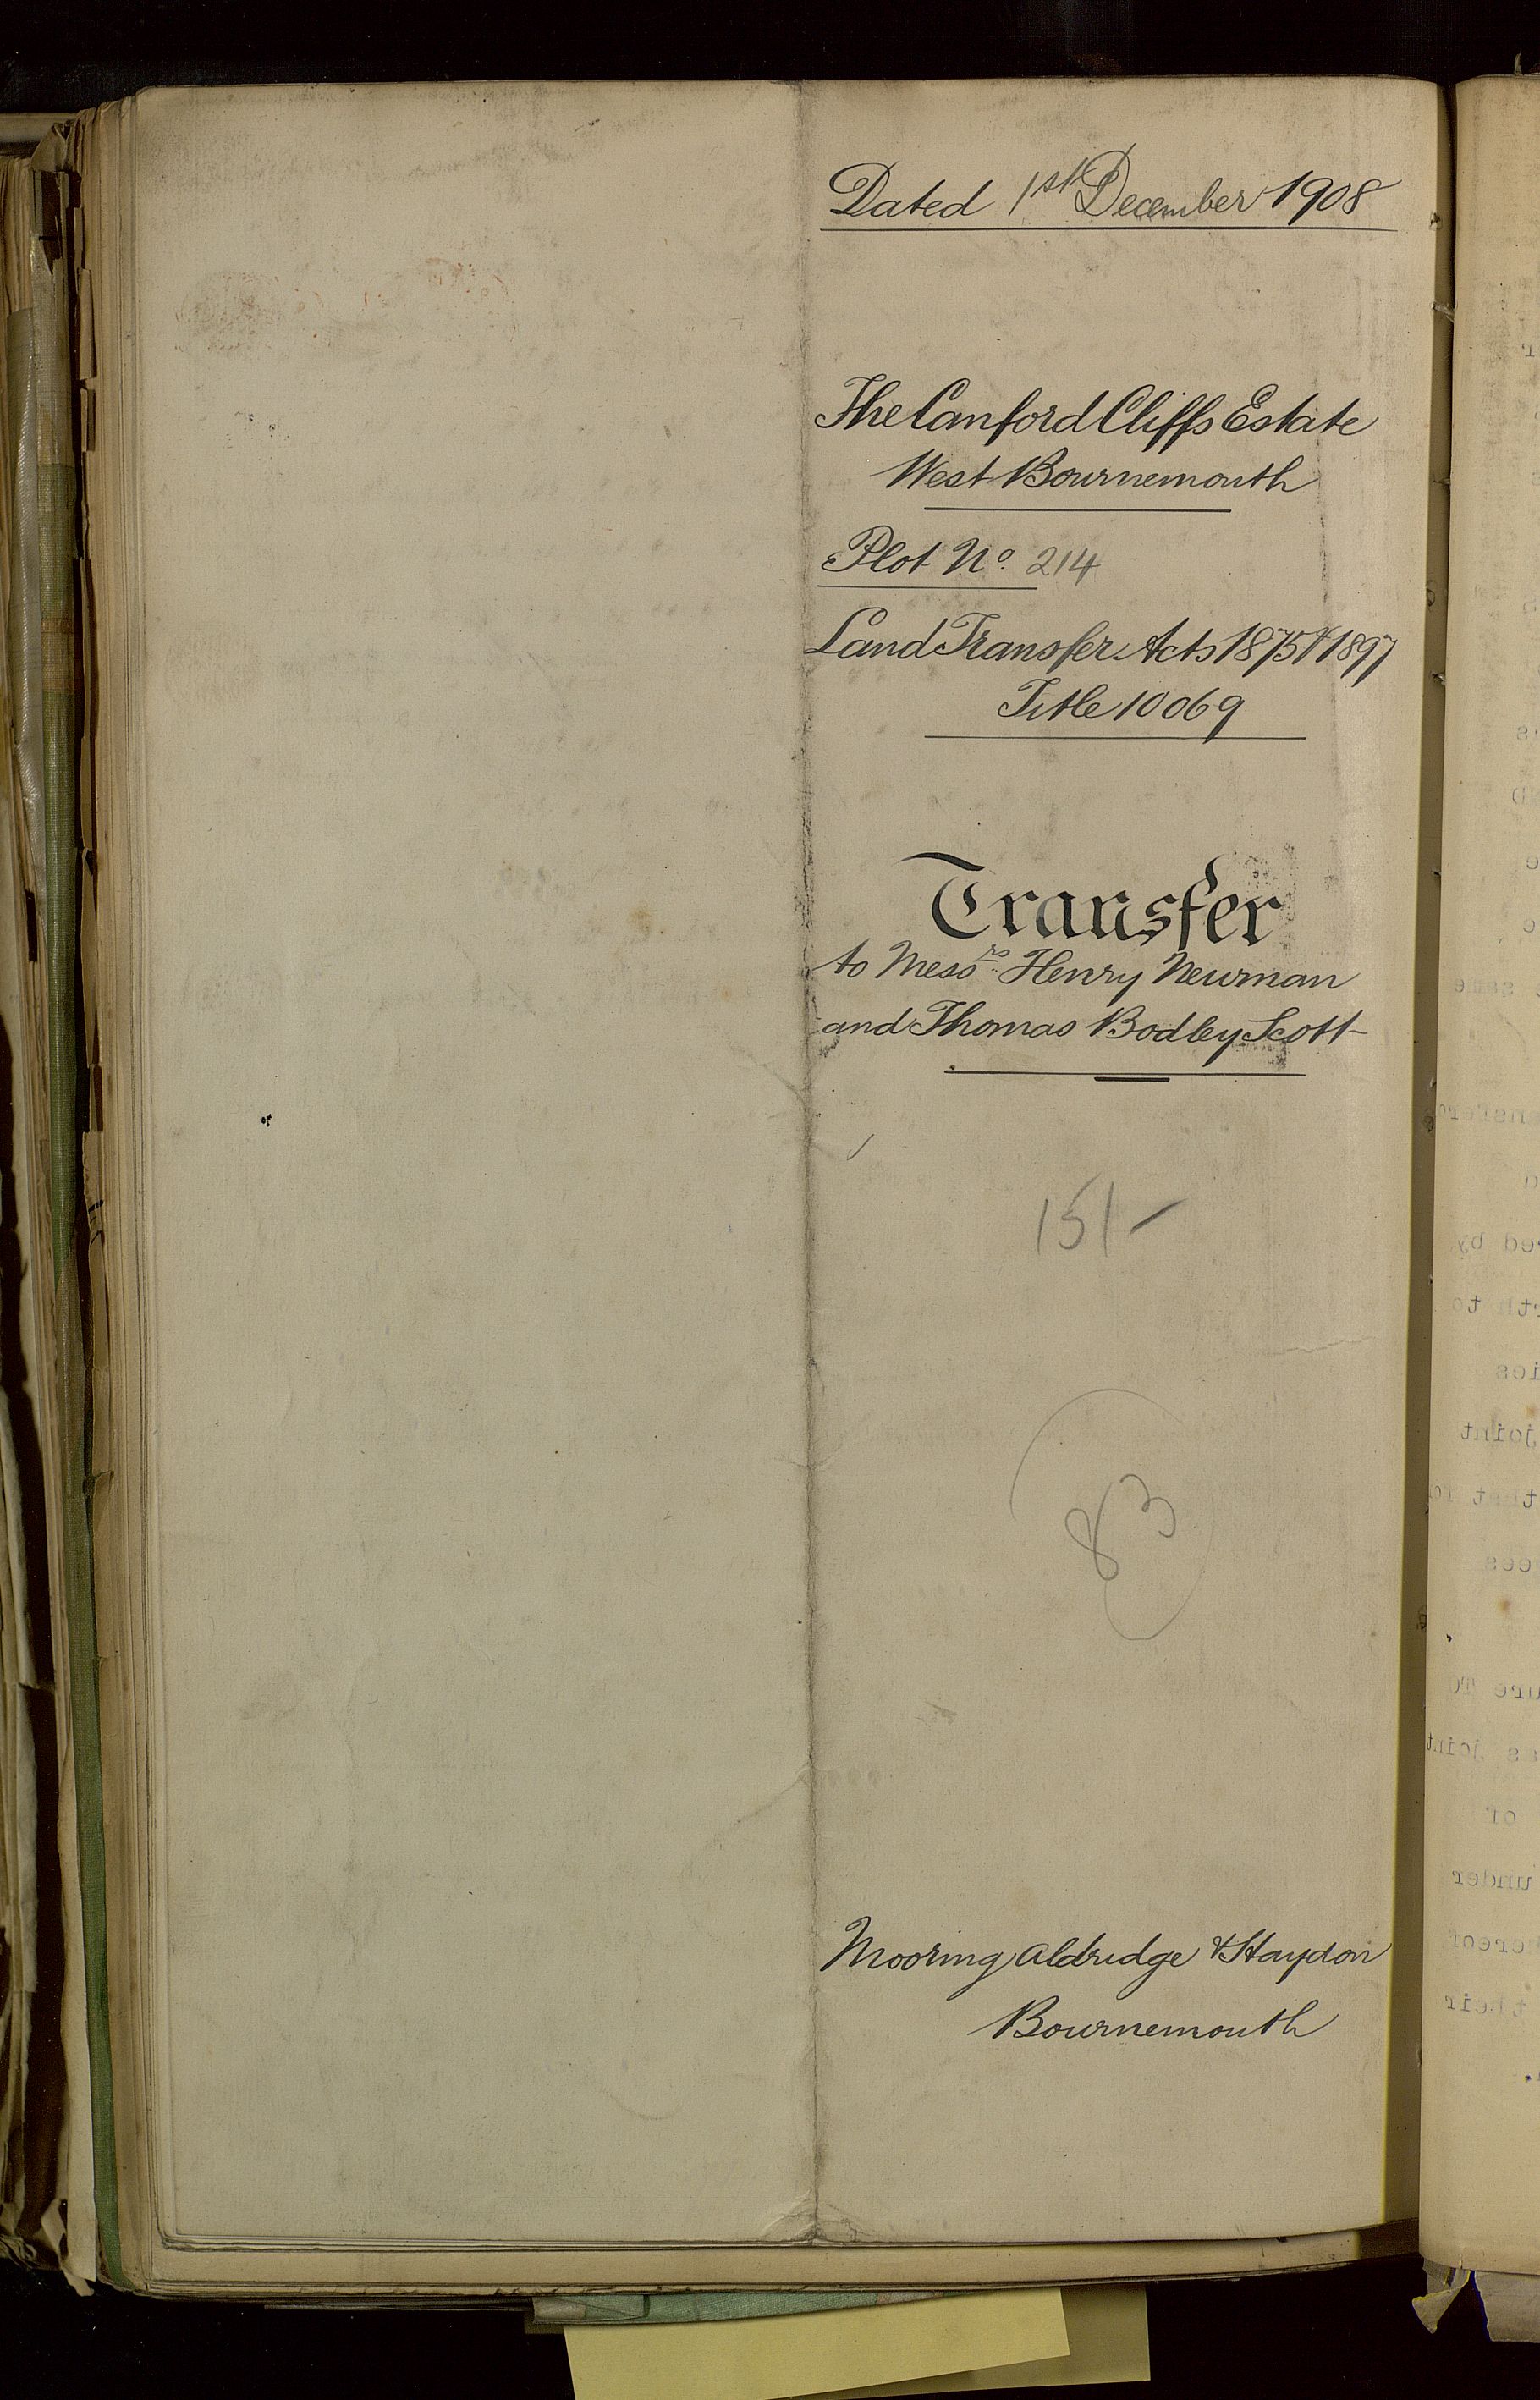 Dated 1st December 1908
The Canford Cliffs Estate
West Bournemouth
Plot No. 214
Land Transfer Acts 1875 & 1897
Title 10069
Transfer
to Messrs Henry Newman
and Thomas Bodley Scott
15/-
83
Mooring Aldridge & Haydon
Bournemouth